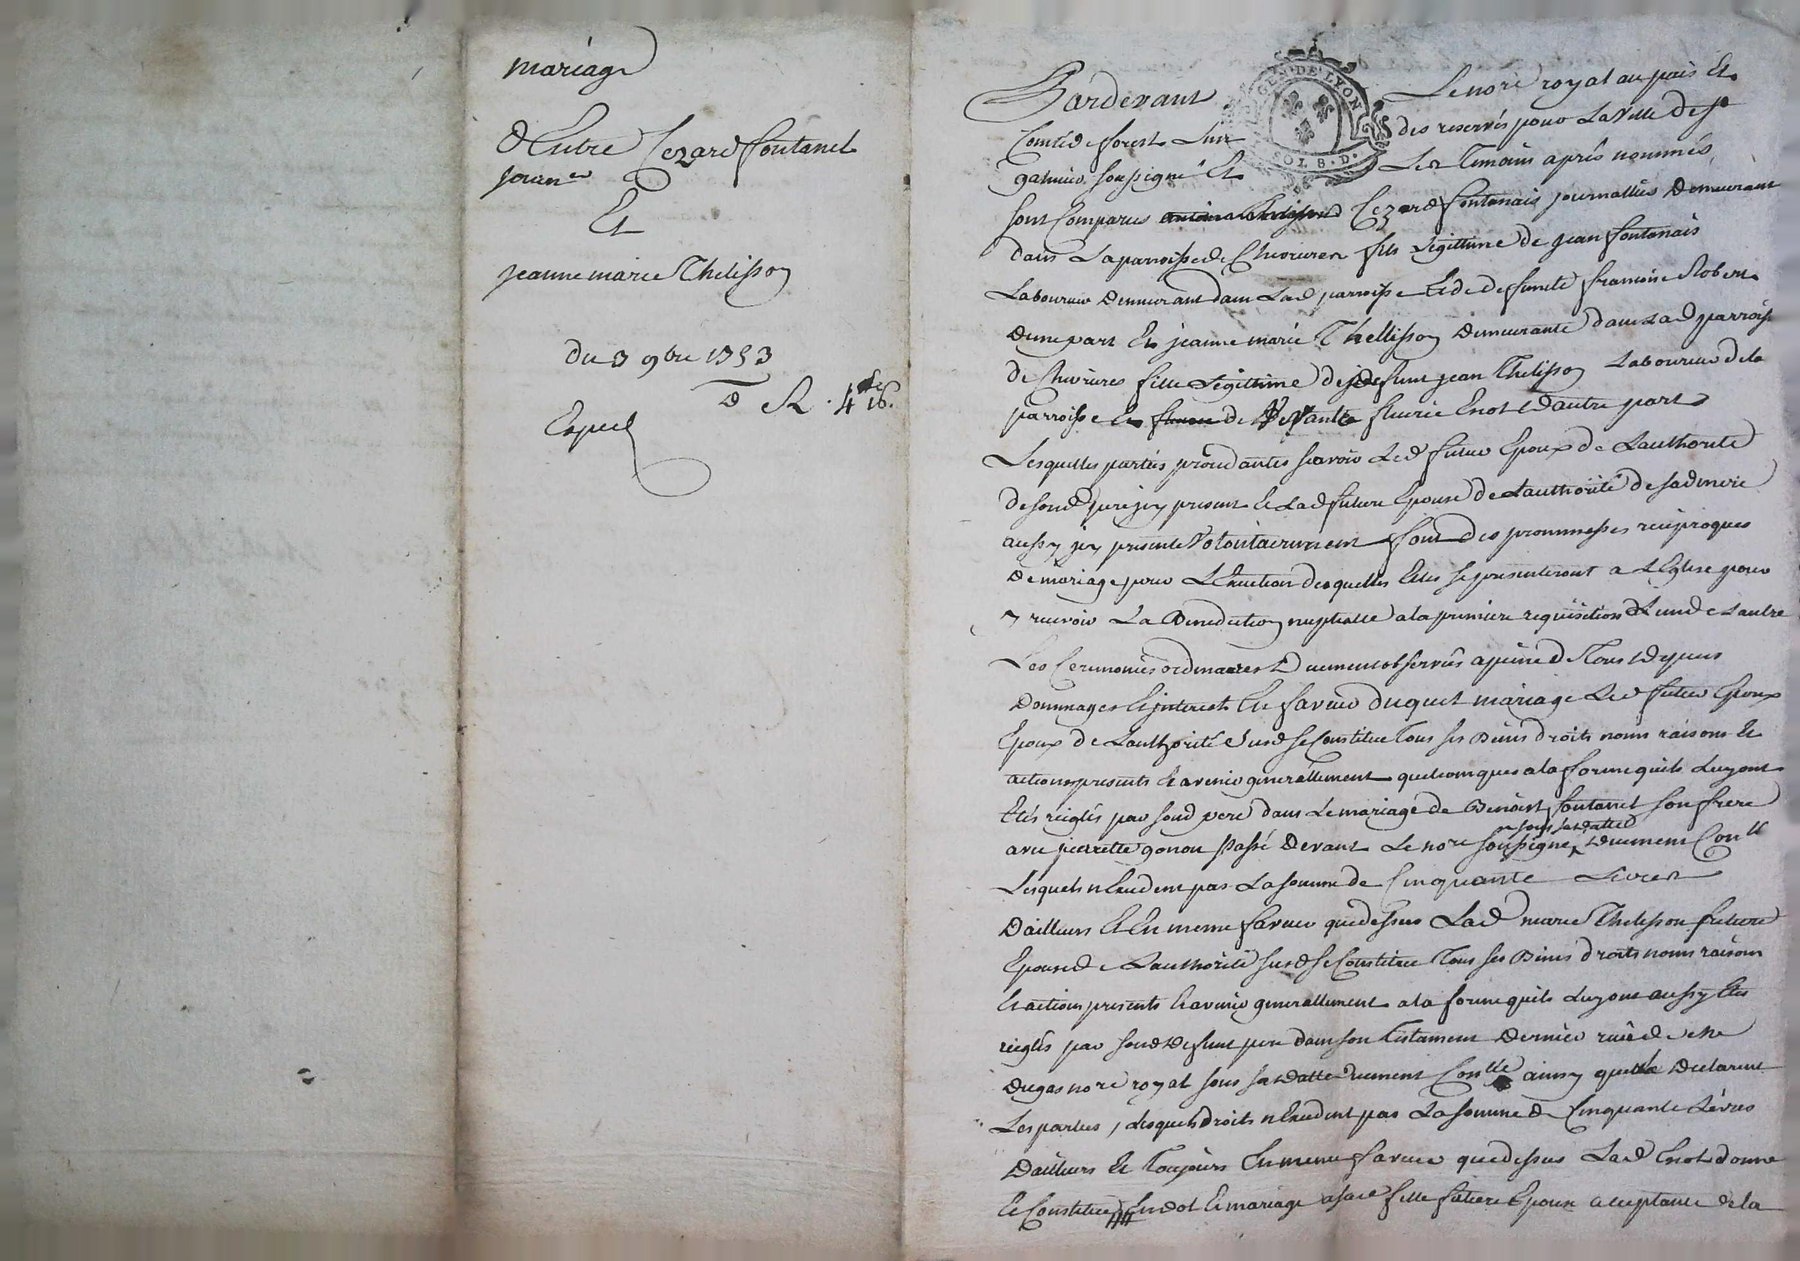 mariage
D'Entre Cezard fontanel
journer
Et
jeanne marie Thelisson
du 3 9bre 1753
R. 4 16.
Exped
Pardevant Le nore royal au païs Et
Comté de forest Sur des reservés pour La Ville de St
galmier soussigné Et Les Temoins aprés nommés,
sont Comparus Cezard fontanais journallier Demeurant
dans La parroisse de Chevrieres fils Legittime de jean fontanais
Laboureur Demeurant dans Lad parroisse Et de deffuncte francoise Robert
Dune part Et jeanne marie Thellisson Demeurante dans Lad parroisse
de Chevrieres fille Legittime de deffunt jean Thelisson Laboureur de la
parroisse Et de Vivante fleurie Enot Dautre part
Lesquelles parties procedantes scavoir Led futur Epoux de Lauthorité
de soud pere jcy present Et Lad future Epouse de Lauthorité de sad mere
aussy jcy presente Volontairement font des prommesses reciproques
De mariage pour LExecution desquelles Elles se presenteront a LEglise pour
y recevoir La Benediction nuptialle a la premiere requisition de Lun de Lautre
Les Ceremonies ordinaires Duement observées a peine de Tous Depens
Dommages Et jnterest En faveur duquel mariage Led futur Epoux
Epoux de Lauthorité Susd se Constitue Tous ses Biens droits noms raisons Et
actions presents Et avenir generallement quelconques a la forme quils Luy ont
Etés reiglés par soud pere dans Le mariage de Benoist fontanel son frere
avec pierrette gonon Passé Devant Le nore soussigné sous sa datte Duement Conllé
Lesquels nExedent pas La somme de Cinquante Livres
Dailleurs Et En meme faveur que dessus Lad marie Thelisson future
Epouse de Lauthorité susd se Constitue Tous ses Biens droits noms raisons
Et actions presents Et avenir generallement a la forme quils Luy ont aussy Etés
reiglés par soud Deffunt pere dans son Testament Dernier
Dugas nore royal sous sa Datte Duement Conllé ainsy que Declarent
Les parties, Lesquels droits nExedent pas La somme de Cinquante Livres
Dailleurs Et Toujours En meme faveur que dessus Lad Enot donne
Et Constitue En dot Et mariage a sad fille future Epouse aceptante de la